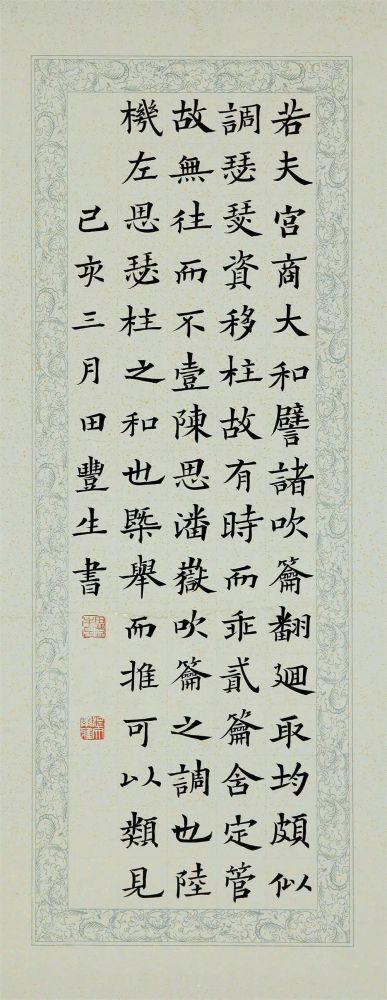 若夫宮商大和譬諸吹籥翻廻取均頗似
調瑟瑟資移柱故有時而乖貳籥舍定管
故無往而不壹陳思潘嶽吹籥之調也陸
機左思瑟柱之和也槩舉而推可以類見
己亥三月田豐生書